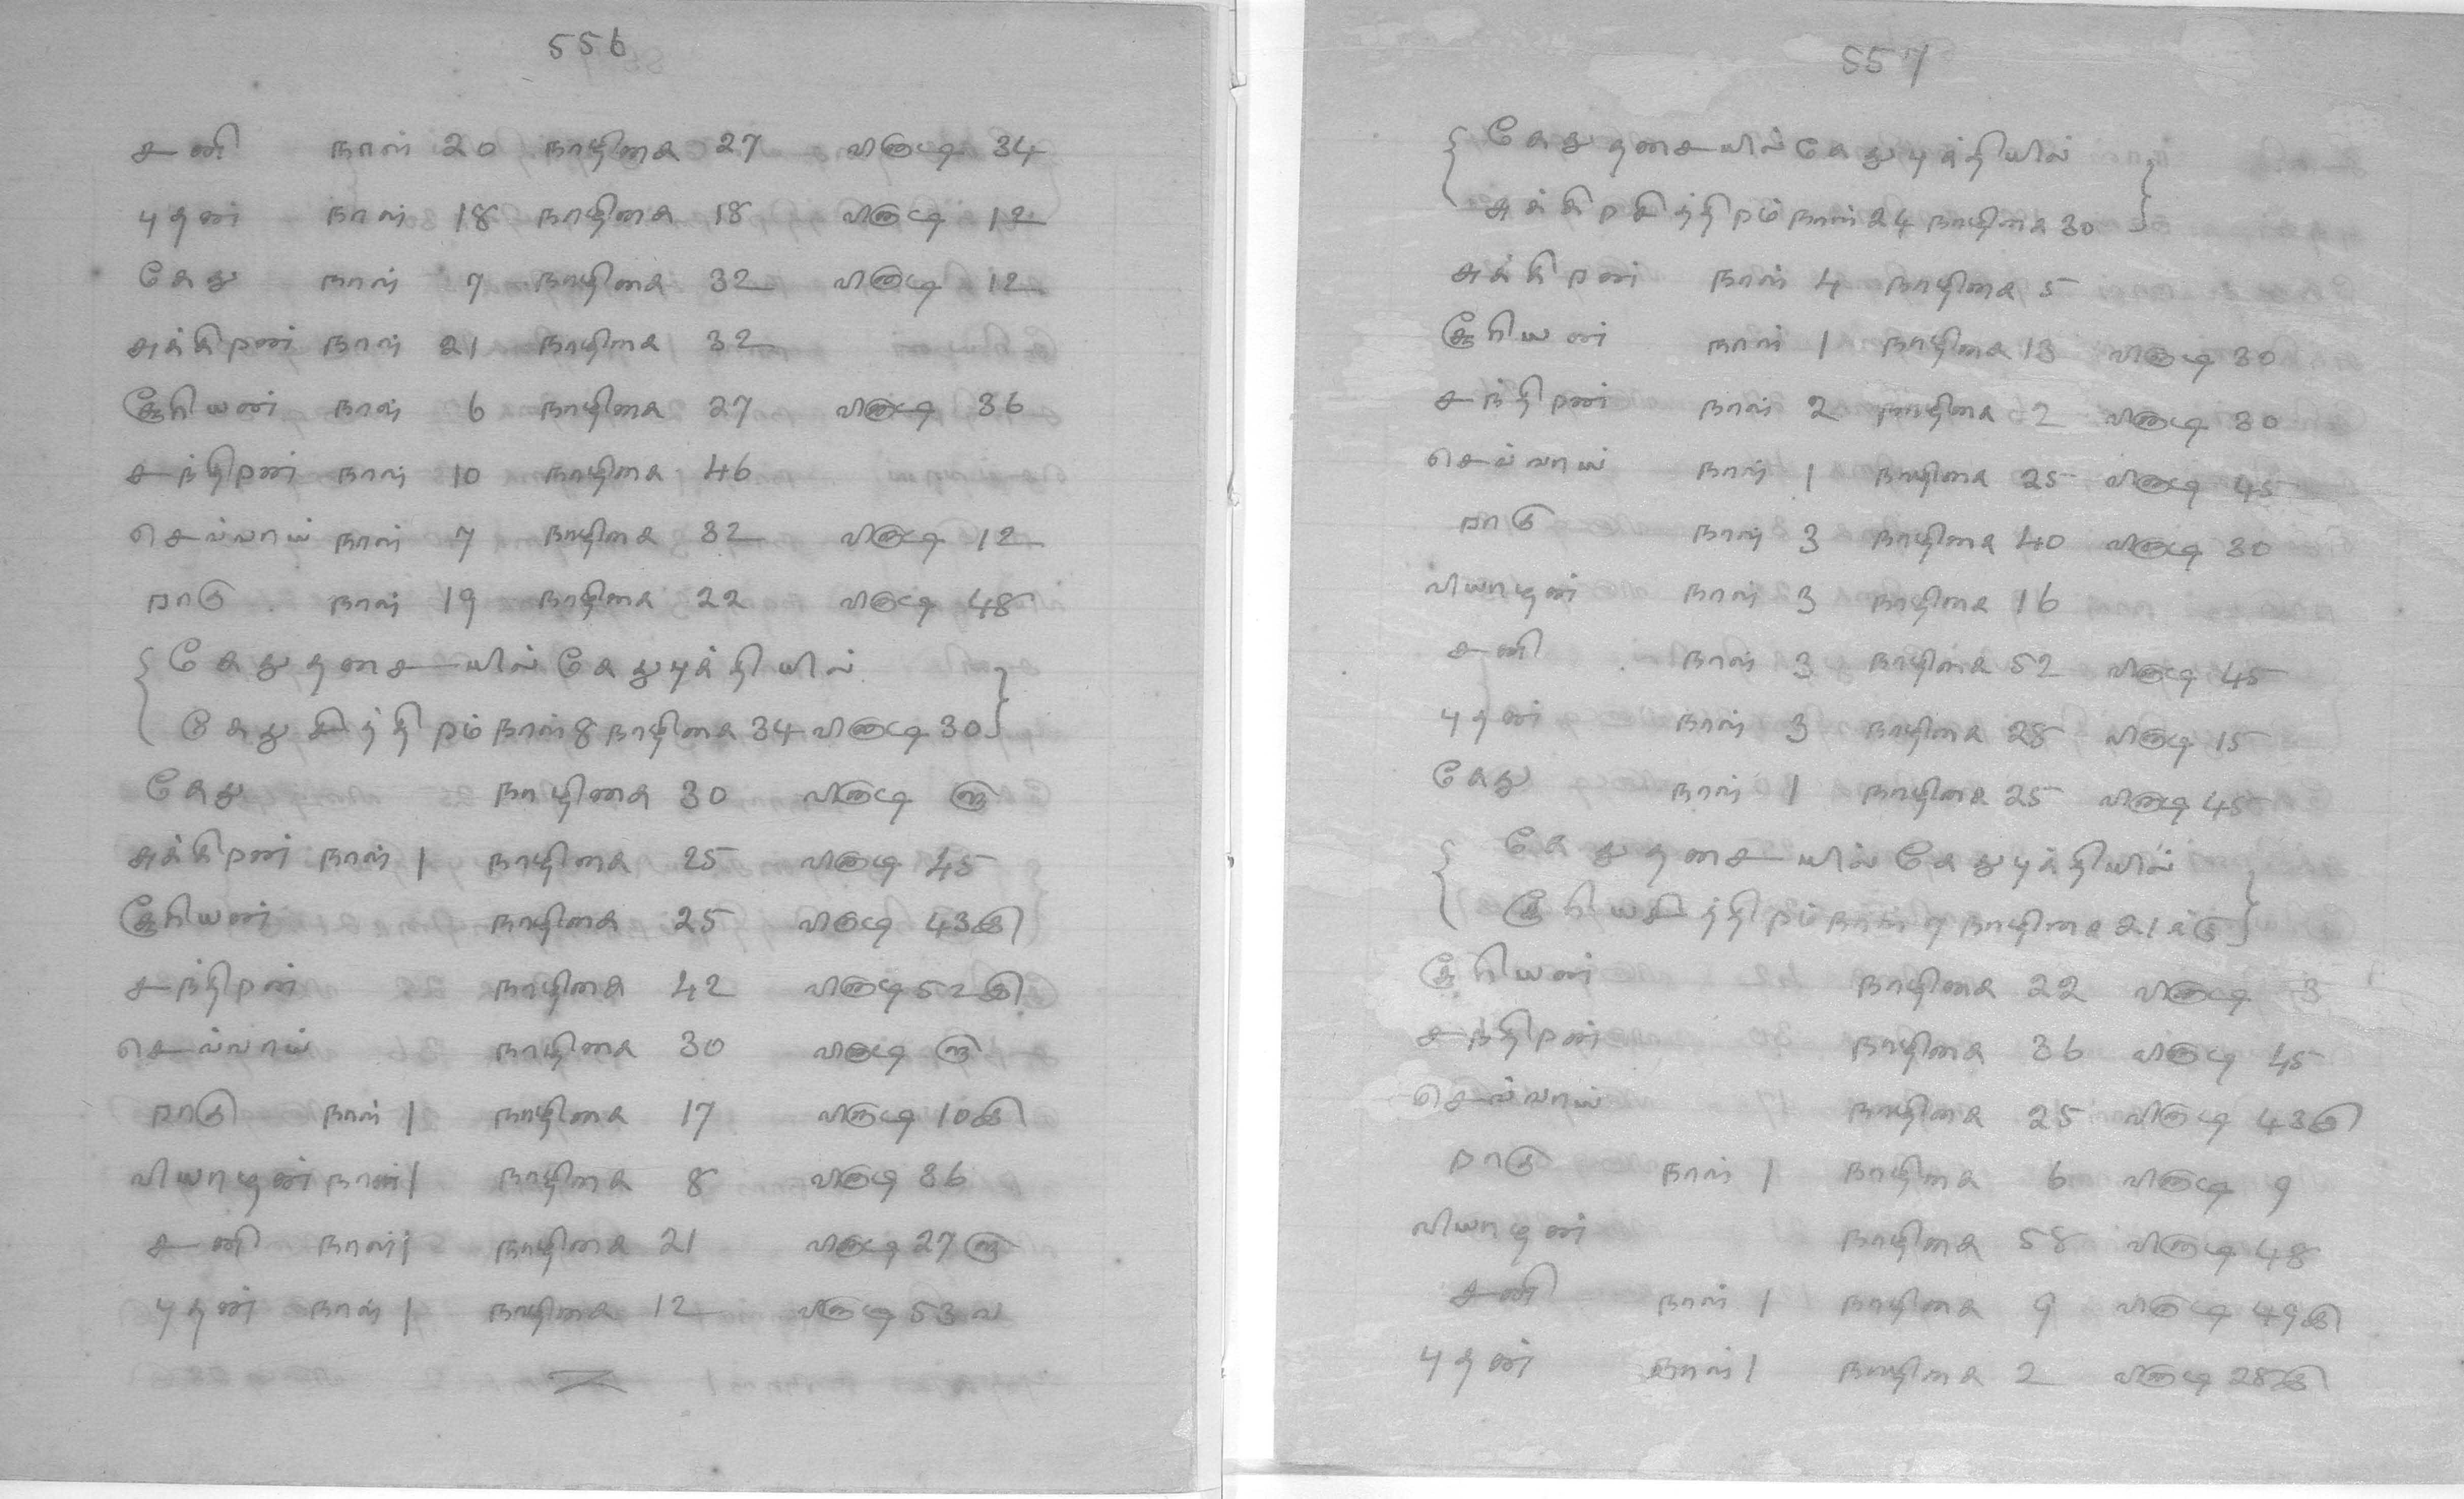 556
சனி நாள் 20 நாழிகை 27 விநாடி 34
புதன் நாள் 18 நாழிகை 18 விநாடி 12
கேது நாள் 7 நாழிகை 32 விநாடி 12
சுக்கிறன் நாள் 21 நாழிகை 32
சூரியன் நாள் 6 நாழிகை 27 விநாடி 36
சந்திறன் நாள் 10 நாழிகை 46
செவ்வாய் நாள் 7 நாழிகை 32 விநாடி 12
றாகு நாள் 19 நாழிகை 22 விநாடி 48
{ கேதுதசையில் கேதுபுக்தியில்
கேதுசித்திறம் நாள் 8 நாழிகை 34 விநாடி 30 }
கேது நாழிகை 30 விநாடி
சுக்கிறன் நாள் 1 நாழிகை 25 விநாடி 45
சூரியன் நாழிகை 25 விநாடி 43
சந்திறன் நாழிகை 42 விநாடி 52
செவ்வாய் நாழிகை 30 விநாடி
றாகு நாள் 1 நாழிகை 17 விநாடி 10
வியாழன் நாள் 1 நாழிகை 8 விநாடி 36
சனி நாள் 1 நாழிகை 21 விநாடி 27
புதன் நாள் 1 நாழிகை 12 விநாடி 53 வ
557
{ கேதுதசையில் கேதுபுக்தியில்
சுக்கிறசித்திறம் நாள் 24 நாழிகை 30 }
சுக்கிறன் நாள் 4 நாழிகை 5
சூரியன் நாள் 1 நாழிகை 13 விநாடி 30
சந்திறன் நாள் 2 நாழிகை 2 விநாடி 30
செவ்வாய் நாள் 1 நாழிகை 25 விநாடி 45
றாகு நாள் 3 நாழிகை 40 விநாடி 30
வியாழன் நாள் 3 நாழிகை 16
சனி நாள் 3 நாழிகை 52 விநாடி 45
புதன் நாள் 3 நாழிகை 28 விநாடி 15
கேது நாள் 1 நாழிகை 25 விநாடி 45
{ கேதுதசையில் கேதுபுக்தியில்
சூரியசித்திறம் நாள் 7 நாழிகை 21க்கு }
சூரியன் நாழிகை 22 விநாடி 3
சந்திறன் நாழிகை 36 விநாடி 45
செவ்வாய் நாழிகை 25 விநாடி 43
றாகு நாள் 1 நாழிகை 6 விநாடி 9
வியாழன் நாழிகை 58 விநாடி 48
சனி நாள் 1 நாழிகை 9 விநாடி 49
புதன் நாள் 1 நாழிகை 2 விநாடி 28